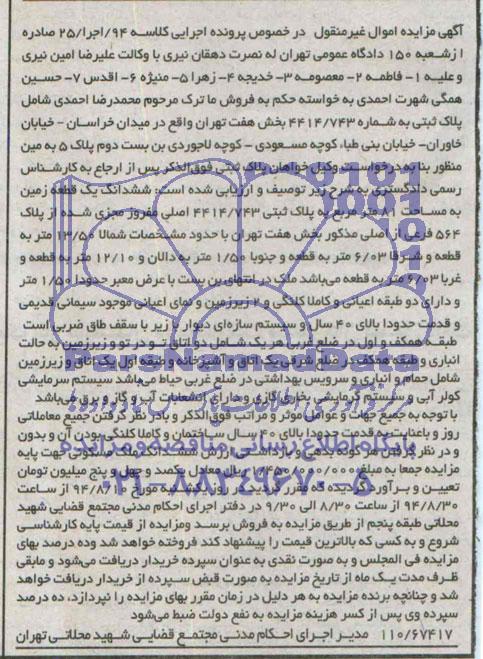 آگهی مزایده اموال غیرمنقول در خصوص پرونده اجرایی کلاسه ۹۴/اجرا/۲۵ صادره
از شعبه ۱۵۰ دادگاه عمومی تهران له نصرت دهقان نیری با وکالت علیرضا امین نیری
و علیه ۱- فاطمه ۲- معصومه ۳- خدیجه ۴- زهرا ۵- منیژه ۶- اقدس ۷- حسین
همگی شهرت احمدی به خواسته حکم به فروش ما ترک مرحوم محمدرضا احمدی شامل
پلاک ثبتی به شماره ۴۴۱۴/۷۴۳ بخش هفت تهران واقع در میدان خراسان - خیابان
خاوران- خیابان بنی طبا، کوچه مسعودی - کوچه لاجوردی بن بست دوم پلاک ۵ به مین
منظور بنا به درخواست وکیل خواهان پلاک ثبتی فوق الذکر پس از ارجاع به کارشناس
رسمی دادگستری به شرح زیر توصیف و ارزیابی شده است: ششدانگ یک قطعه زمین
به مساحت ۸۱ متر مربع به پلاک ثبتی ۴۴۱۴/۷۴۳ اصلی مفروز مجزی شده از پلاک
۵۶۴ فرعی از اصلی مذکور بخش هفت تهران با حدود مشخصات شمالا ۱۳/۵۰ متر به
قطعه و شرقا ۶/۰۳ متر به قطعه و جنوبا ۱/۵۰ متر به دالان و ۱۲/۱۰ متر به قطعه و
غربا ۶/۰۳ متر به قطعه می‌باشد ملک در انتهای بن بست با عرض معبر حدودا ۱/۵۰ متر
و دارای دو طبقه اعیانی و کاملا کلنگی و ۲ زیرزمین و نمای اعیانی موجود سیمانی قدیمی
و قدمت حدودا بالای ۴۰ سال و سیستم سازه‌ای دیوار با زیر با سقف طاق ضربی است
طبقه همکف و اول در ضلع غربی هر یک شامل دو اتاق تو در تو و زیرزمین به حالت
انباری و طبقه همکف در ضلع شرقی یک اتاق و آشپزخانه و طبقه اول یک اتاق و زیرزمین
شامل حمام و انباری و سرویس بهداشتی در ضلع غربی حیاط می‌باشد سیستم سرمایشی
کولر آبی و سیستم گرمایشی بخاری گازی و دارای انشعابات آب و گاز و برق می‌باشد
با توجه به جمیع جهات و عوامل موثر و مراتب فوق الذکر و بادر نظر گرفتن جمیع معاملاتی
روز و باعنایت به قدمت حدودا بالای ۴۰ سال ساختمان و کاملا کلنگی بودن آن و بدون
و در نظر گرفتن هر گونه بدهی و بازداشت ارزش ششدانگ ملک مسکونی جهت پایه
مزایده جمعا به مبلغ ۱/۴۵۰/۰۰۰/۰۰۰ ریال معادل یکصد و چهل و پنج میلیون تومان
تعیین و برآورد گردیده که مقرر گردید در روز یکشنبه مورخ ۹۴/۸/۱۰ از ساعت
۹۴/۸/۳۰ از ساعت ۸/۳۰ الی ۹/۳۰ در دفتر اجرای احکام مدنی مجتمع قضایی شهید
محلاتی طبقه پنجم از طریق مزایده به فروش برسد ومزایده از قیمت پایه کارشناسی
شروع و به کسی که بالاترین قیمت را پیشنهاد کند فروخته خواهد شد وده درصد بهای
مزایده فی المجلس و به صورت نقدی به عنوان سپرده خریدار دریافت می‌شود و مابقی
ظرف مدت یک ماه از تاریخ مزایده به صورت قبض سپرده از خریدار دریافت خواهد
شد و چنانچه برنده مزایده به هر دلیل در زمان مقرر بهای مزایده را نپردازد، ده درصد
سپرده وی پس از کسر هزینه مزایده به نفع دولت ضبط می‌شود
۱۱۰/۶۷۴۱۷ مدیر اجرای احکام مدنی مجتمع قضایی شهید محلاتی تهران
ParsNamadData
پایگاه اطلاع رسانی مناقصه و مزایده
۰۲۱-۸۸۳۴۹۶۷۰-۵